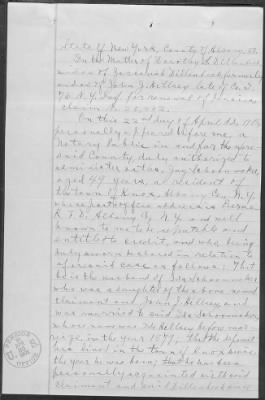 State of New York, County of Albany, SS.
In the Matter of Dorothy D. Dillenback
widow of Josephus Dillenback, formerly
widow of John J. Hellsey late of Co. D,
76 N.Y. Inf. for renewal of
claim No.
On this 22nd day of April A.D.
personally appeared before me, a
Notary Public in and for the afore-
said County, duly authorized to
administer oaths, Jay
aged 49 years, a resident of
the town of Knox, Albany Co., N.Y.
whose post office address is Berne
R.F.D. Albany Co. N.Y. and well
known to me to be reputable and
entitled to credit, and who being
duly sworn declared in relation to
aforesaid case as follows: That
he is the husband of
who was a daughter of the above named
claimant and John J. Hellsey and
was married to said
whose name was Hellsey before mar-
riage, in the year 1877, that the defendant
has lived in the town of Knox since
the year he was born; that he has been
personally acquainted with said
claimant and said Dillenback since